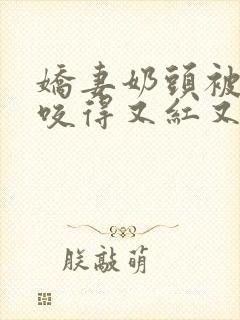 嬌妻奶頭被
咬得又紅又
朕敲萌